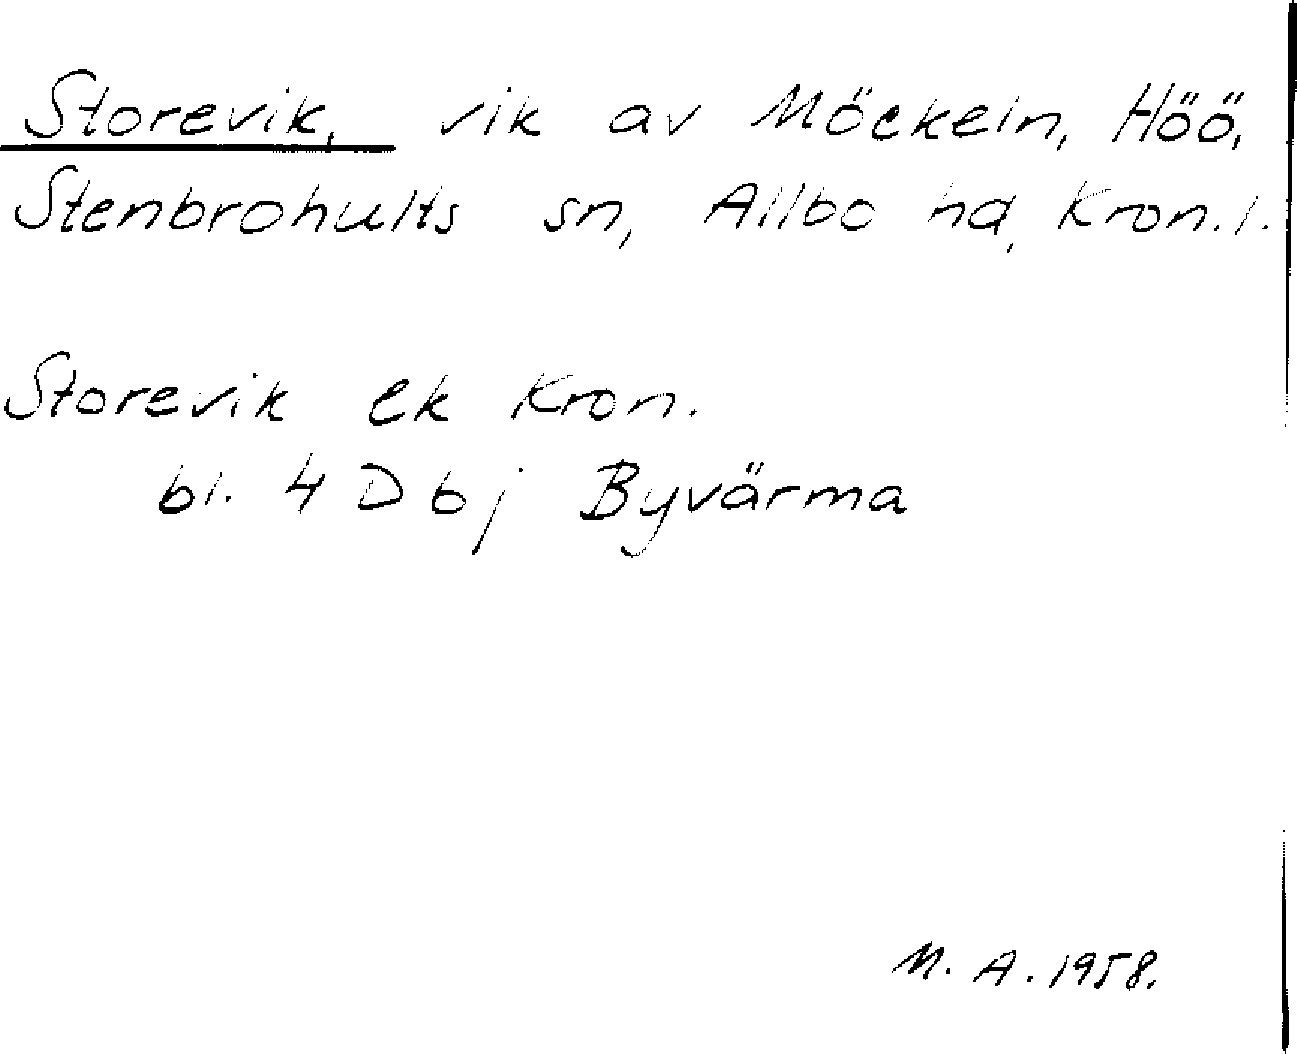 Storevik, vik av Möckeln, Höö,
Stenbrohults sn, Allbo hd, Kron.l.
Storevik ek Kron.
bl. 4 D bj Byvärma
M. A. 1958.